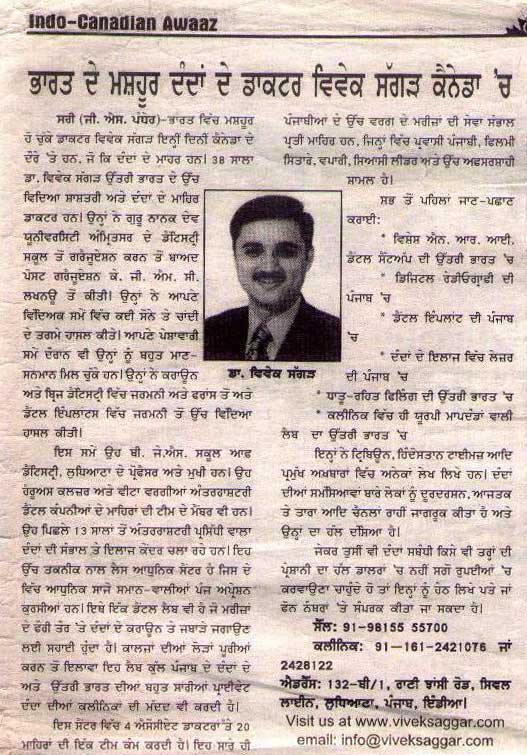 Indo-Canadian Awaaz
ਭਾਰਤ ਦੇ ਮਸ਼ਹੂਰ ਦੰਦਾਂ ਦੇ ਡਾਕਟਰ ਵਿਵੇਕ ਸੱਗੜ ਕੈਨੇਡਾ 'ਚ
ਸਰੀ (ਜੀ. ਐਸ. ਪੰਧੇਰ)-ਭਾਰਤ ਵਿੱਚ ਮਸ਼ਹੂਰ
ਹੋ ਚੁੱਕੇ ਡਾਕਟਰ ਵਿਵੇਕ ਸੱਗੜ ਇਨ੍ਹੀਂ ਦਿਨੀਂ ਕੈਨੇਡਾ ਦੇ
ਦੌਰੇ 'ਤੇ ਹਨ, ਜੋ ਕਿ ਦੰਦਾਂ ਦੇ ਮਾਹਰ ਹਨ। 38 ਸਾਲਾ
ਡਾ. ਵਿਵੇਕ ਸੱਗੜ ਉੱਤਰੀ ਭਾਰਤ ਦੇ ਉੱਚ
ਵਿਦਿਆ ਸ਼ਾਸਤਰੀ ਅਤੇ ਦੰਦਾਂ ਦੇ ਮਾਹਿਰ
ਡਾਕਟਰ ਹਨ। ਉਨ੍ਹਾਂ ਨੇ ਗੁਰੂ ਨਾਨਕ ਦੇਵ
ਯੂਨੀਵਰਸਿਟੀ ਅੰਮ੍ਰਿਤਸਰ ਦੇ ਡੈਂਟਿਸਟ੍ਰੀ
ਸਕੂਲ ਤੋਂ ਗਰੈਜੂਏਸ਼ਨ ਕਰਨ ਤੋਂ ਬਾਅਦ
ਪੋਸਟ ਗਰੈਜੂਏਸ਼ਨ ਕੇ. ਜੀ. ਐਮ. ਸੀ.
ਲਖਨਊ ਤੋਂ ਕੀਤੀ। ਉਨ੍ਹਾਂ ਨੇ ਆਪਣੇ
ਵਿੱਦਿਅਕ ਸਮੇਂ ਵਿੱਚ ਕਈ ਸੋਨੇ ਤੇ ਚਾਂਦੀ
ਦੇ ਤਗਮੇ ਹਾਸਲ ਕੀਤੇ। ਆਪਣੇ ਪੇਸ਼ਾਵਾਰੀ
ਸਮੇਂ ਦੌਰਾਨ ਵੀ ਉਨ੍ਹਾਂ ਨੂੰ ਬਹੁਤ ਮਾਣ-
ਸਨਮਾਨ ਮਿਲ ਚੁੱਕੇ ਹਨ। ਉਨ੍ਹਾਂ ਨੇ ਕਰਾਊਨ
ਅਤੇ ਬ੍ਰਿਜ ਡੈਂਟਿਸਟ੍ਰੀ ਵਿੱਚ ਜਰਮਨੀ ਅਤੇ ਫਰਾਂਸ ਤੋਂ ਅਤੇ
ਡੈਂਟਲ ਇੰਪਲਾਂਟਸ ਵਿੱਚ ਜਰਮਨੀ ਤੋਂ ਉੱਚ ਵਿੱਦਿਆ
ਹਾਸਲ ਕੀਤੀ।
ਇਸ ਸਮੇਂ ਉਹ ਬੀ. ਜੇ.ਐਸ. ਸਕੂਲ ਆਫ
ਡੈਂਟਿਸਟ੍ਰੀ, ਲੁਧਿਆਣਾ ਦੇ ਪ੍ਰੋਫੈਸਰ ਅਤੇ ਮੁਖੀ ਹਨ। ਉਹ
ਹੇਰੂਅਸ ਕਲਜ਼ਰ ਅਤੇ ਵੀਟਾ ਵਰਗੀਆਂ ਅੰਤਰਰਾਸ਼ਟਰੀ
ਡੈਂਟਲ ਕੰਪਨੀਆਂ ਦੇ ਮਾਹਿਰਾਂ ਦੀ ਟੀਮ ਦੇ ਮੈਂਬਰ ਵੀ ਹਨ।
ਉਹ ਪਿਛਲੇ 13 ਸਾਲਾਂ ਤੋਂ ਅੰਤਰਰਾਸ਼ਟਰੀ ਪ੍ਰਸਿੱਧੀ ਵਾਲਾ
ਦੰਦਾਂ ਦੀ ਸੰਭਾਲ ਤੇ ਇਲਾਜ ਕੇਂਦਰ ਚਲਾ ਰਹੇ ਹਨ। ਇਹ
ਉੱਚ ਤਕਨੀਕ ਨਾਲ ਲੈਸ ਆਧੁਨਿਕ ਸੈਂਟਰ ਹੈ ਜਿਸ ਦੇ
ਵਿੱਚ ਆਧੁਨਿਕ ਸਾਜੋ ਸਮਾਨ-ਵਾਲੀਆਂ ਪੰਜ ਅਪ੍ਰੇਸ਼ਨ
ਕੁਰਸੀਆਂ ਹਨ। ਇਥੇ ਇੱਕ ਡੈਂਟਲ ਲੈਬ ਵੀ ਹੈ ਜੋ ਮਰੀਜ਼ਾਂ
ਦੇ ਫੌਰੀ ਤੌਰ 'ਤੇ ਦੰਦਾਂ ਦੇ ਕਰਾਊਨ ਤੇ ਜਬਾੜੇ ਜਗਾਉਣ
ਲਈ ਸਹਾਈ ਹੁੰਦਾ ਹੈ। ਕਾਲਜਾਂ ਦੀਆਂ ਲੋੜਾਂ ਪੂਰੀਆਂ
ਕਰਨ ਤੋਂ ਇਲਾਵਾ ਇਹ ਲੈਬ ਕੁੱਲ ਪੰਜਾਬ ਦੇ ਦੰਦਾਂ ਦੇ
ਅਤੇ ਉੱਤਰੀ ਭਾਰਤ ਦੀਆਂ ਬਹੁਤ ਸਾਰੀਆਂ ਪ੍ਰਾਈਵੇਟ
ਦੰਦਾਂ ਦੀਆਂ ਕਲੀਨਿਕਾਂ ਦੀ ਮੱਦਦ ਵੀ ਕਰਦੀ ਹੈ।
ਇਸ ਸੈਂਟਰ ਵਿੱਚ 4 ਐਸੋਸੀਏਟ ਡਾਕਟਰਾਂ 'ਤੇ 20
ਮਾਹਿਰਾਂ ਦੀ ਇੱਕ ਟੀਮ ਕੰਮ ਕਰਦੀ ਹੈ। ਇਹ ਸਾਰੇ ਹੀ
ਡਾ. ਵਿਵੇਕ ਸੱਗੜ
ਪੰਜਾਬੀਆਂ ਦੇ ਉੱਚ ਵਰਗ ਦੇ ਮਰੀਜ਼ਾਂ ਦੀ ਸੇਵਾ ਸੰਭਾਲ
ਪ੍ਰਤੀ ਮਾਹਿਰ ਹਨ, ਜਿਨ੍ਹਾਂ ਵਿੱਚ ਪ੍ਰਵਾਸੀ ਪੰਜਾਬੀ, ਫਿਲਮੀ
ਸਿਤਾਰੇ, ਵਪਾਰੀ, ਸਿਆਸੀ ਲੀਡਰ ਅਤੇ ਉੱਚ ਅਫਸਰਸ਼ਾਹੀ
ਸ਼ਾਮਲ ਹੈ।
ਸਭ ਤੋਂ ਪਹਿਲਾਂ ਜਾਣ-ਪਛਾਣ
ਕਰਾਈ:
* ਵਿਸ਼ੇਸ਼ ਐਨ. ਆਰ. ਆਈ.
ਡੈਂਟਲ ਸੈੱਟਅੱਪ ਦੀ ਉੱਤਰੀ ਭਾਰਤ 'ਚ
* ਡਿਜਿਟਲ ਰੇਡੀਓਗ੍ਰਾਫੀ ਦੀ
ਪੰਜਾਬ 'ਚ
* ਡੈਂਟਲ ਇੰਪਲਾਂਟ ਦੀ ਪੰਜਾਬ
'ਚ
* ਦੰਦਾਂ ਦੇ ਇਲਾਜ ਵਿੱਚ ਲੇਜ਼ਰ
ਦੀ ਪੰਜਾਬ 'ਚ
* ਧਾਤੂ-ਰਹਿਤ ਫਿਲਿੰਗ ਦੀ ਉੱਤਰੀ ਭਾਰਤ 'ਚ
* ਕਲੀਨਿਕ ਵਿੱਚ ਹੀ ਯੂਰਪੀ ਮਾਪਦੰਡਾਂ ਵਾਲੀ
ਲੈਬ ਦਾ ਉੱਤਰੀ ਭਾਰਤ 'ਚ
ਇਨ੍ਹਾਂ ਨੇ ਟ੍ਰਿਬਿਊਨ, ਹਿੰਦੋਸਤਾਨ ਟਾਈਮਜ਼ ਆਦਿ
ਪ੍ਰਮੁੱਖ ਅਖ਼ਬਾਰਾਂ ਵਿੱਚ ਅਨੇਕਾਂ ਲੇਖ ਲਿਖੇ ਹਨ। ਦੰਦਾਂ
ਦੀਆਂ ਸਮੱਸਿਆਵਾਂ ਬਾਰੇ ਲੋਕਾਂ ਨੂੰ ਦੂਰਦਰਸ਼ਨ, ਆਜਤਕ
ਤੇ ਤਾਰਾ ਆਦਿ ਚੈਨਲਾਂ ਰਾਹੀਂ ਜਾਗਰੂਕ ਕੀਤਾ ਹੈ ਅਤੇ
ਉਨ੍ਹਾਂ ਦਾ ਹੱਲ ਦੱਸਿਆ ਹੈ।
ਜੇਕਰ ਤੁਸੀਂ ਵੀ ਦੰਦਾਂ ਸਬੰਧੀ ਕਿਸੇ ਵੀ ਤਰ੍ਹਾਂ ਦੀ
ਪ੍ਰੇਸ਼ਾਨੀ ਦਾ ਹੱਲ ਡਾਲਰਾਂ 'ਚ ਨਹੀਂ ਸਗੋਂ ਰੁਪਈਆਂ 'ਚ
ਕਰਵਾਉਣਾ ਚਾਹੁੰਦੇ ਹੋ ਤਾਂ ਇਨ੍ਹਾਂ ਨੂੰ ਹੇਠ ਲਿਖੇ ਪਤੇ ਜਾਂ
ਫੋਨ ਨੰਬਰਾਂ 'ਤੇ ਸੰਪਰਕ ਕੀਤਾ ਜਾ ਸਕਦਾ ਹੈ।
ਸੈੱਲ: 91-98155 55700
ਕਲੀਨਿਕ: 91-161-2421076 ਜਾਂ
2428122
ਐਡਰੈੱਸ: 132-ਬੀ/1, ਰਾਣੀ ਝਾਂਸੀ ਰੋਡ, ਸਿਵਲ
ਲਾਈਨ, ਲੁਧਿਆਣਾ, ਪੰਜਾਬ, ਇੰਡੀਆ।
Visit us at www.viveksaggar.com
email: info@viveksaggar.com